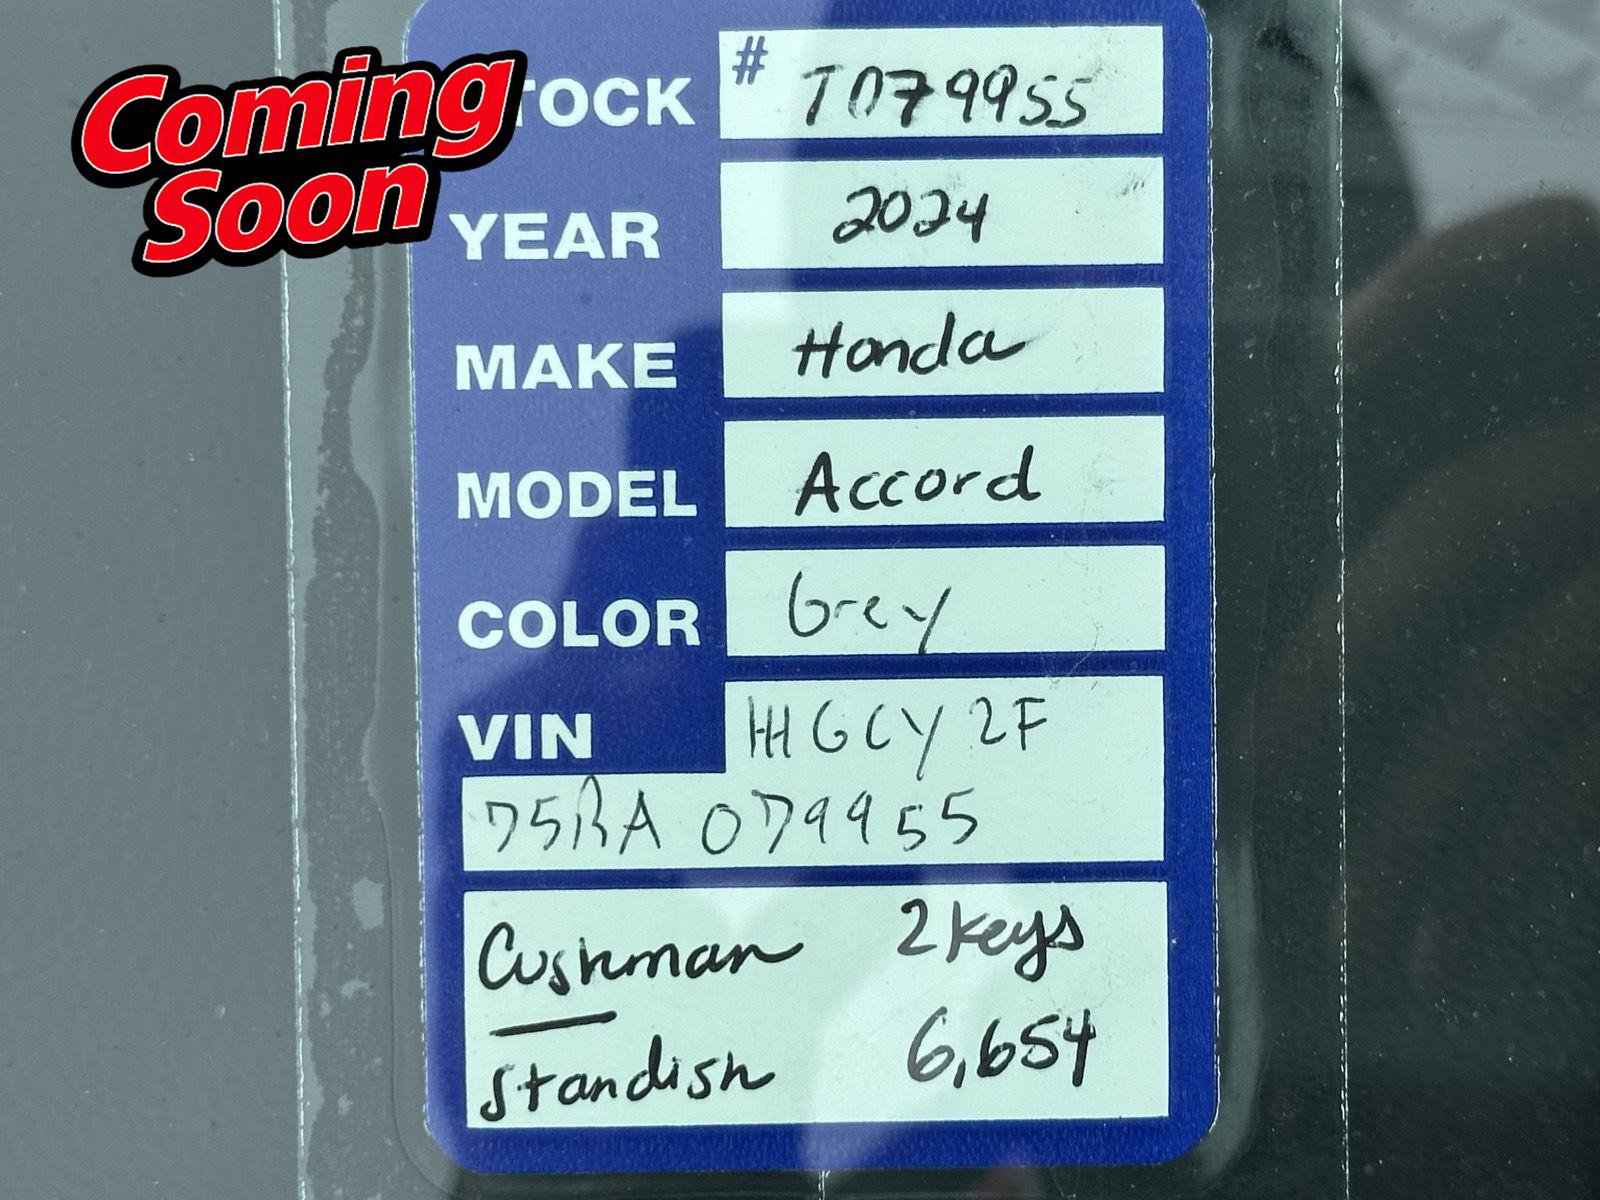 Coming
Soon
STOCK # T079955
YEAR 2024
MAKE Honda
MODEL Accord
COLOR Grey
VIN 1HGCY2F
75RA079955
Cushman 2 keys
Standish 6,654